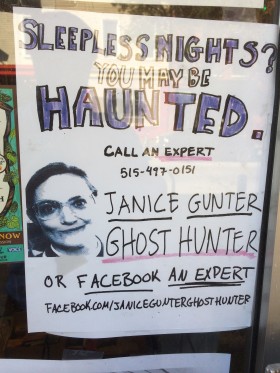 SLEEPLESS NIGHTS?
YOU MAY BE
HAUNTED.
CALL AN EXPERT
515-497-0151
JANICE GUNTER
GHOST HUNTER
OR FACEBOOK AN EXPERT
FACEBOOK.COM/JANICEGUNTERGHOSTHUNTER
NOW